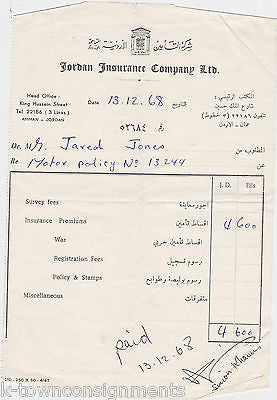 شركة التأمين الأردنية
Jordan Insurance Company Ltd.
Head Office :
King Hussein Street
Tel 22186 ( 3 Lines )
AMMAN - JORDAN
Date 13.12.68 التاريخ
المكتب الرئيسي :
شارع الملك حسين
تلفون ٢٢١٨٦ (٣ خطوط)
عمان - الاردن
٥٣٦٨٤
Dr. M/s. Jared Jones المطلوب من
Re Motor policy No 13244
J. D. Fils
Survey fees اجور معاينة
Insurance Premiums اقساط تأمين 4 600
War اقساط تأمين حربي
Registration Fees رسوم تسجيل
Policy & Stamps رسوم بوليصة وطوابع
Miscellaneous متفرقات
4 600
paid
13.12.68
210 - 250 X 50 - 4/67
k-townconsignments